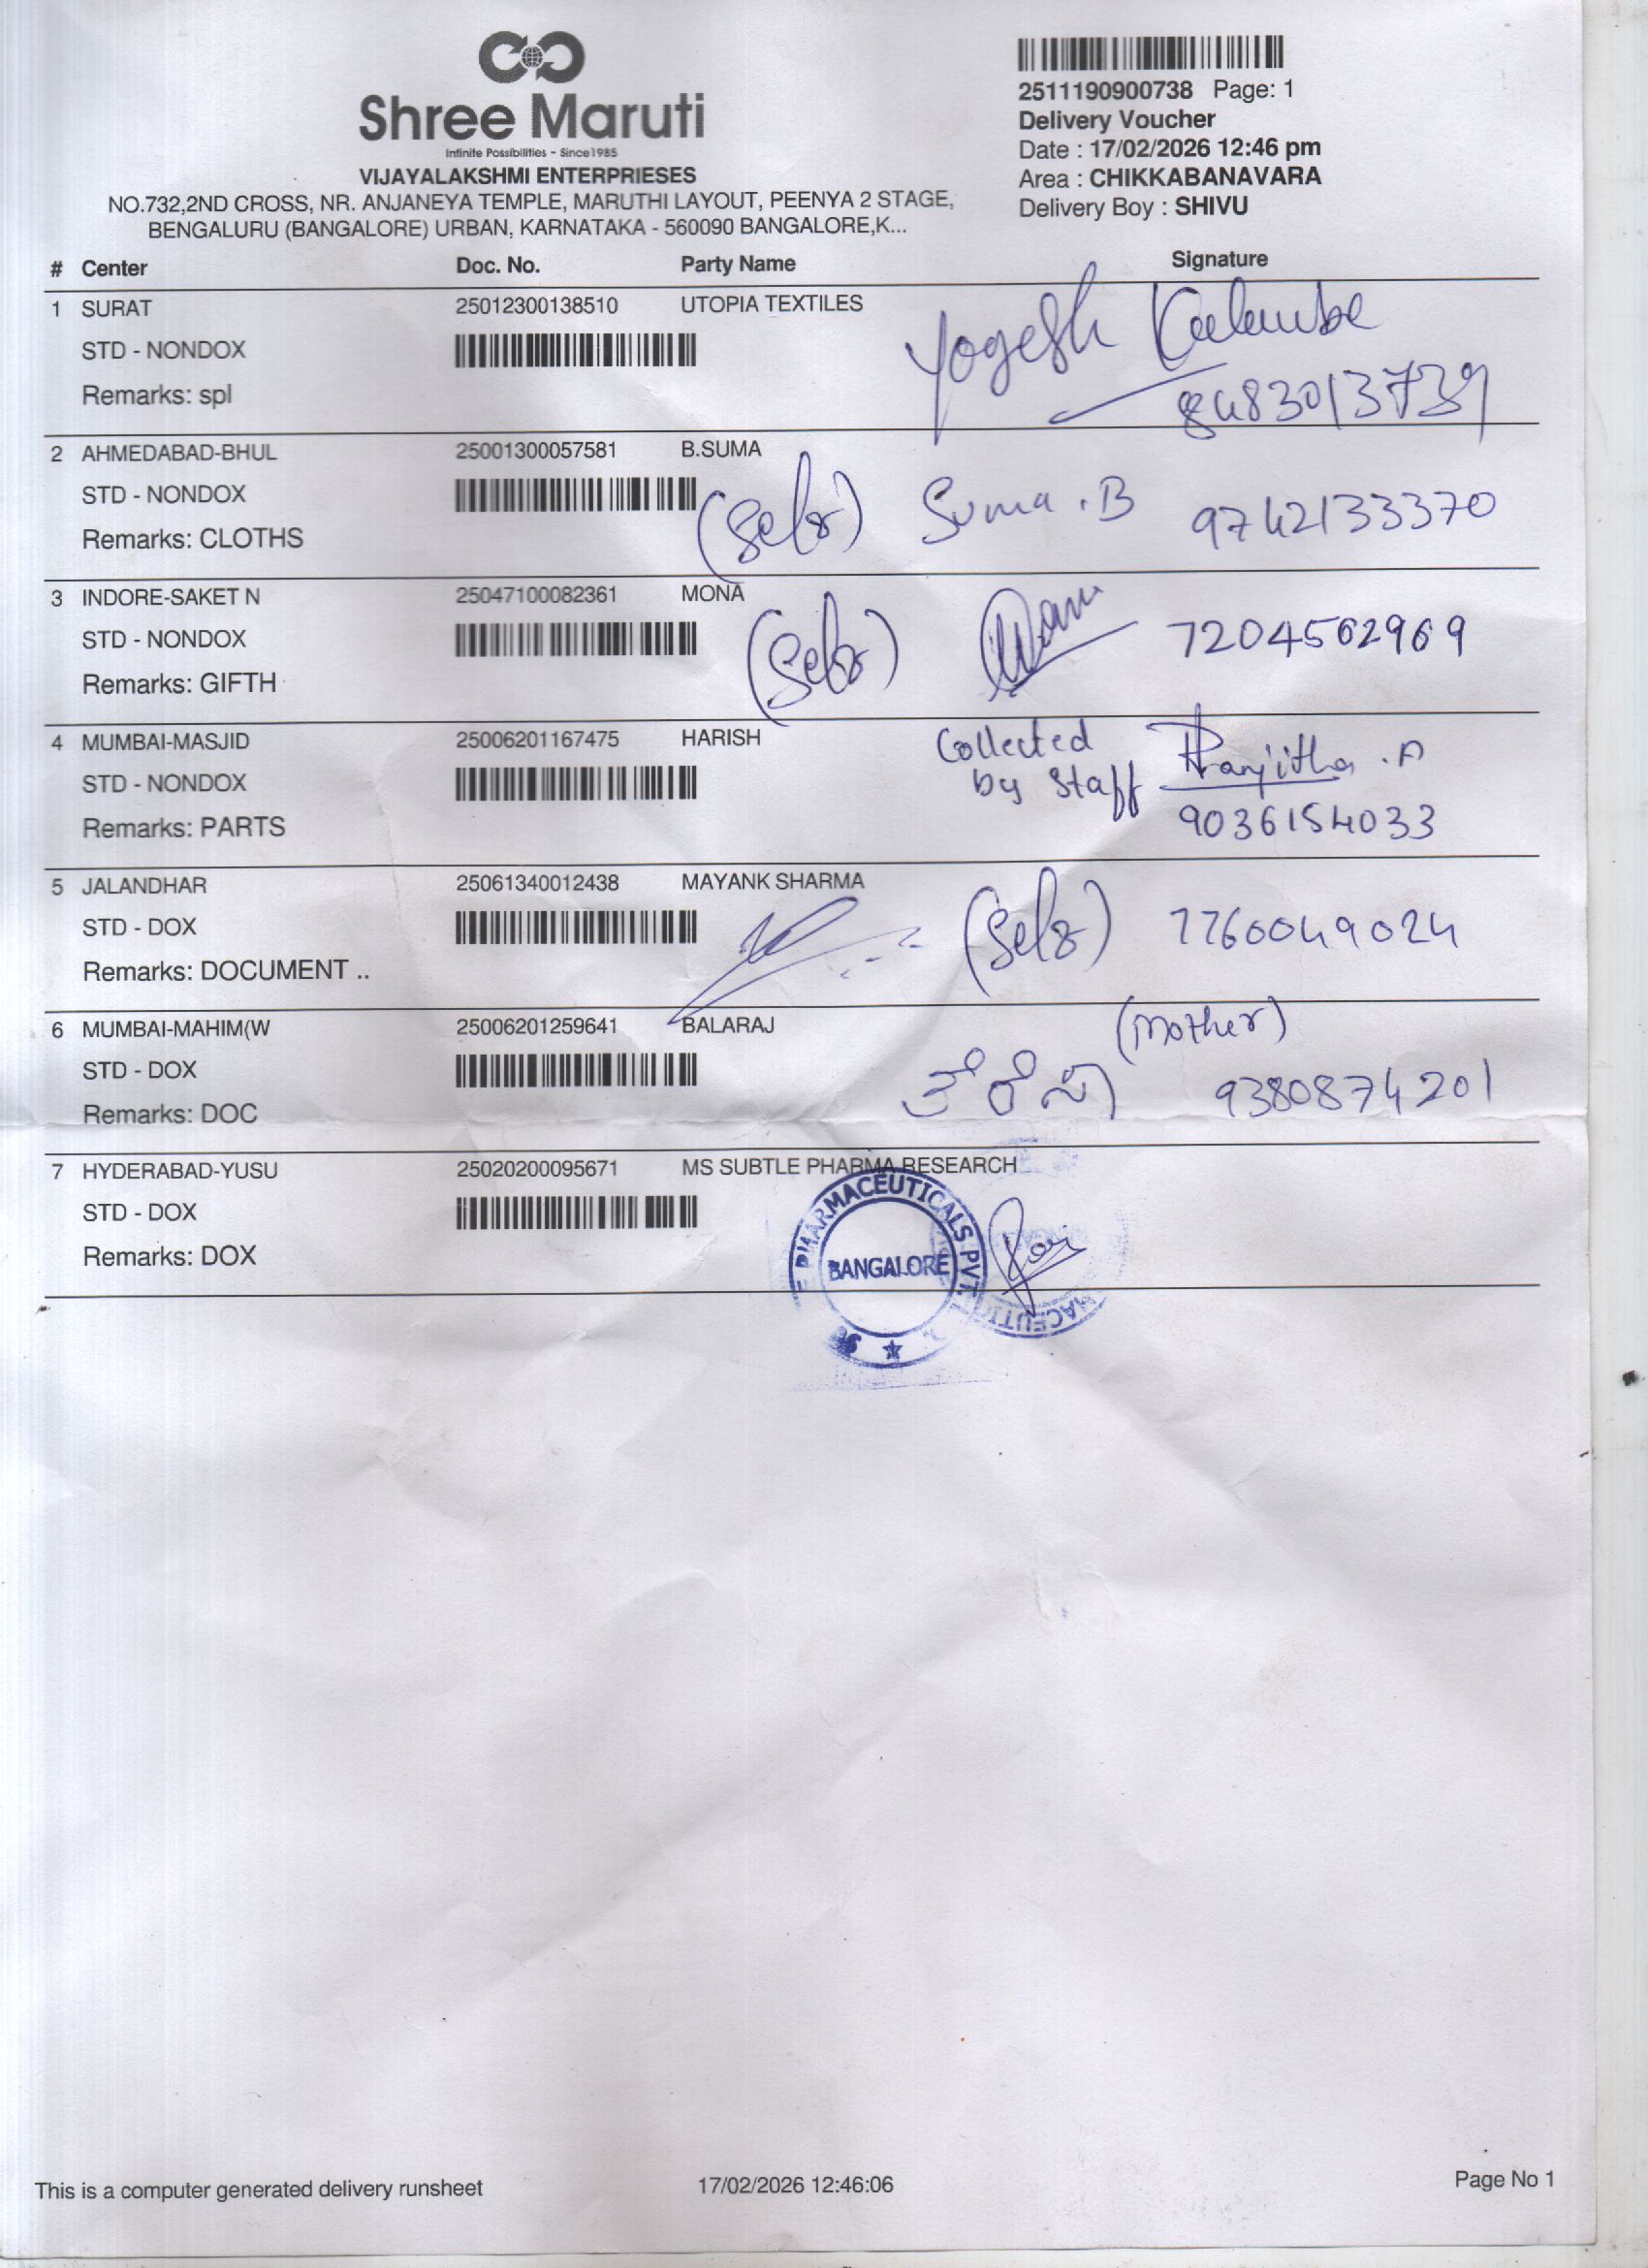 Shree Maruti
Infinite Possibilities - Since1985
VIJAYALAKSHMI ENTERPRIESES
NO.732,2ND CROSS, NR. ANJANEYA TEMPLE, MARUTHI LAYOUT, PEENYA 2 STAGE,
BENGALURU (BANGALORE) URBAN, KARNATAKA - 560090 BANGALORE,K...
2511190900738 Page: 1
Delivery Voucher
Date : 17/02/2026 12:46 pm
Area : CHIKKABANAVARA
Delivery Boy : SHIVU
# Center Doc. No. Party Name Signature
1 SURAT 25012300138510 UTOPIA TEXTILES
STD - NONDOX Yogesh Kalambe
Remarks: spl 8483013739
2 AHMEDABAD-BHUL 25001300057581 B.SUMA
STD - NONDOX (Self) Suma .B 9742133370
Remarks: CLOTHS
3 INDORE-SAKET N 25047100082361 MONA
STD - NONDOX (Self) 7204562969
Remarks: GIFTH
4 MUMBAI-MASJID 25006201167475 HARISH Collected
STD - NONDOX by Staff Ranjitha .A
Remarks: PARTS 9036154033
5 JALANDHAR 25061340012438 MAYANK SHARMA
STD - DOX (Self) 7760049024
Remarks: DOCUMENT ..
6 MUMBAI-MAHIM(W 25006201259641 BALARAJ (Mother)
STD - DOX 9380874201
Remarks: DOC
7 HYDERABAD-YUSU 25020200095671 MS SUBTLE PHARMA RESEARCH
STD - DOX PHARMACEUTICALS PVT.
Remarks: DOX BANGALORE
This is a computer generated delivery runsheet 17/02/2026 12:46:06 Page No 1